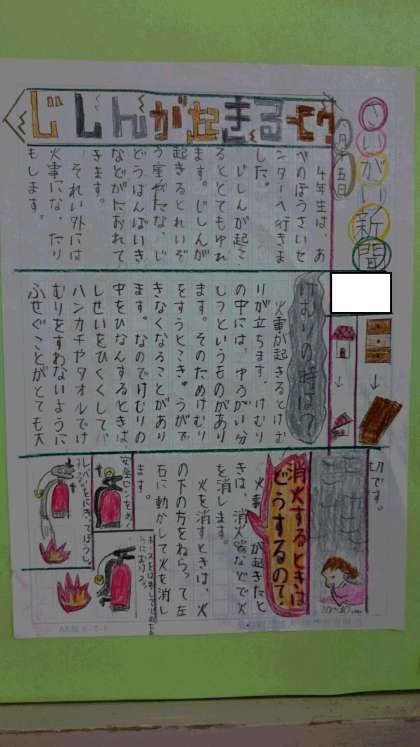 さいがい新聞
月十五日
じしんが起きると?
4年生は、あ
べのぼうさいセ
ンターへ行きま
した。
じしんが起こ
るととてもゆれ
ます。じしんが
起きるとれいぞ
う庫やたな、じ
どうはんばいき
などがたおれて
きます。
それい外には
火事にな、たり
もします。
けむりの時は?
火事が起きるとけむ
りが立ちます。けむり
の中には、ゆうがい分
しつというものがあり
ます。そのためけむり
をすうとこきゅうがで
きなくなることがあり
ます。なのでけむりの
中をひなんするときは
しせいをひくくして、
ハンカチやタオルでけ
むりをすわないように
ふせぐことがとても大
切です。
消火するときは
どうするの?
火事が起きたと
きは、消火器などで火
を消します。
火を消すときは、火
の下の方をねらって左
右に動かして火を消し
ます。
安全ピンをぬ